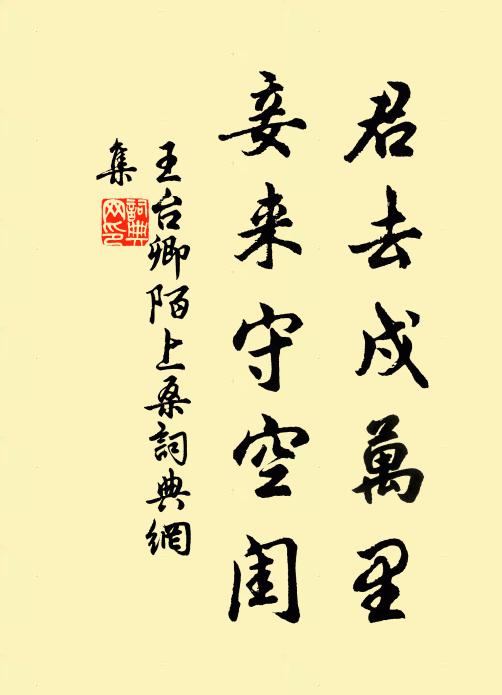 君去戍萬里
妾来守空闺
王台卿陌上桑詞典網
集
詞典
网印